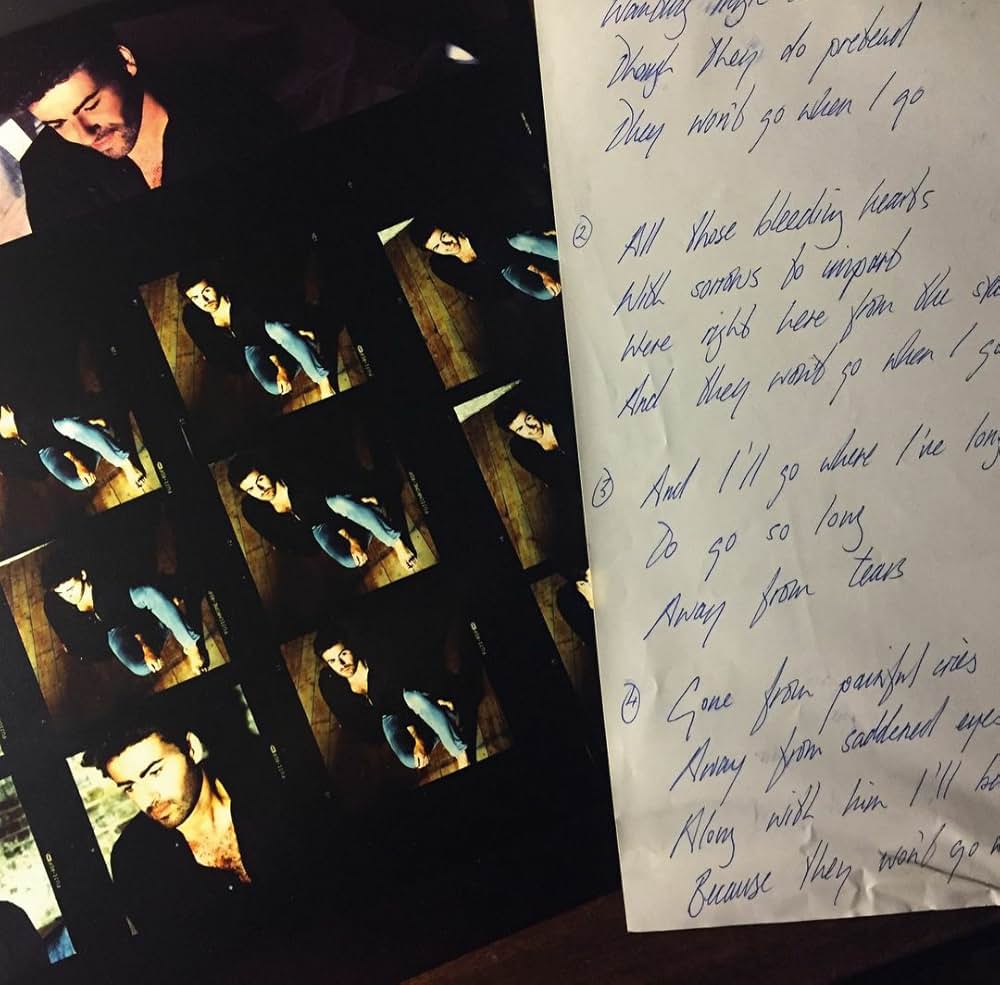 Though they do pretend
They won't go when I go
② All those bleeding hearts
With sorrows to impart
Were right here from the
And they won't go when I go
③ And I'll go where I've long
To go so long
Away from tears
④ Gone from painful cries
Away from saddened eyes
Along with him I'll
Because they won't go